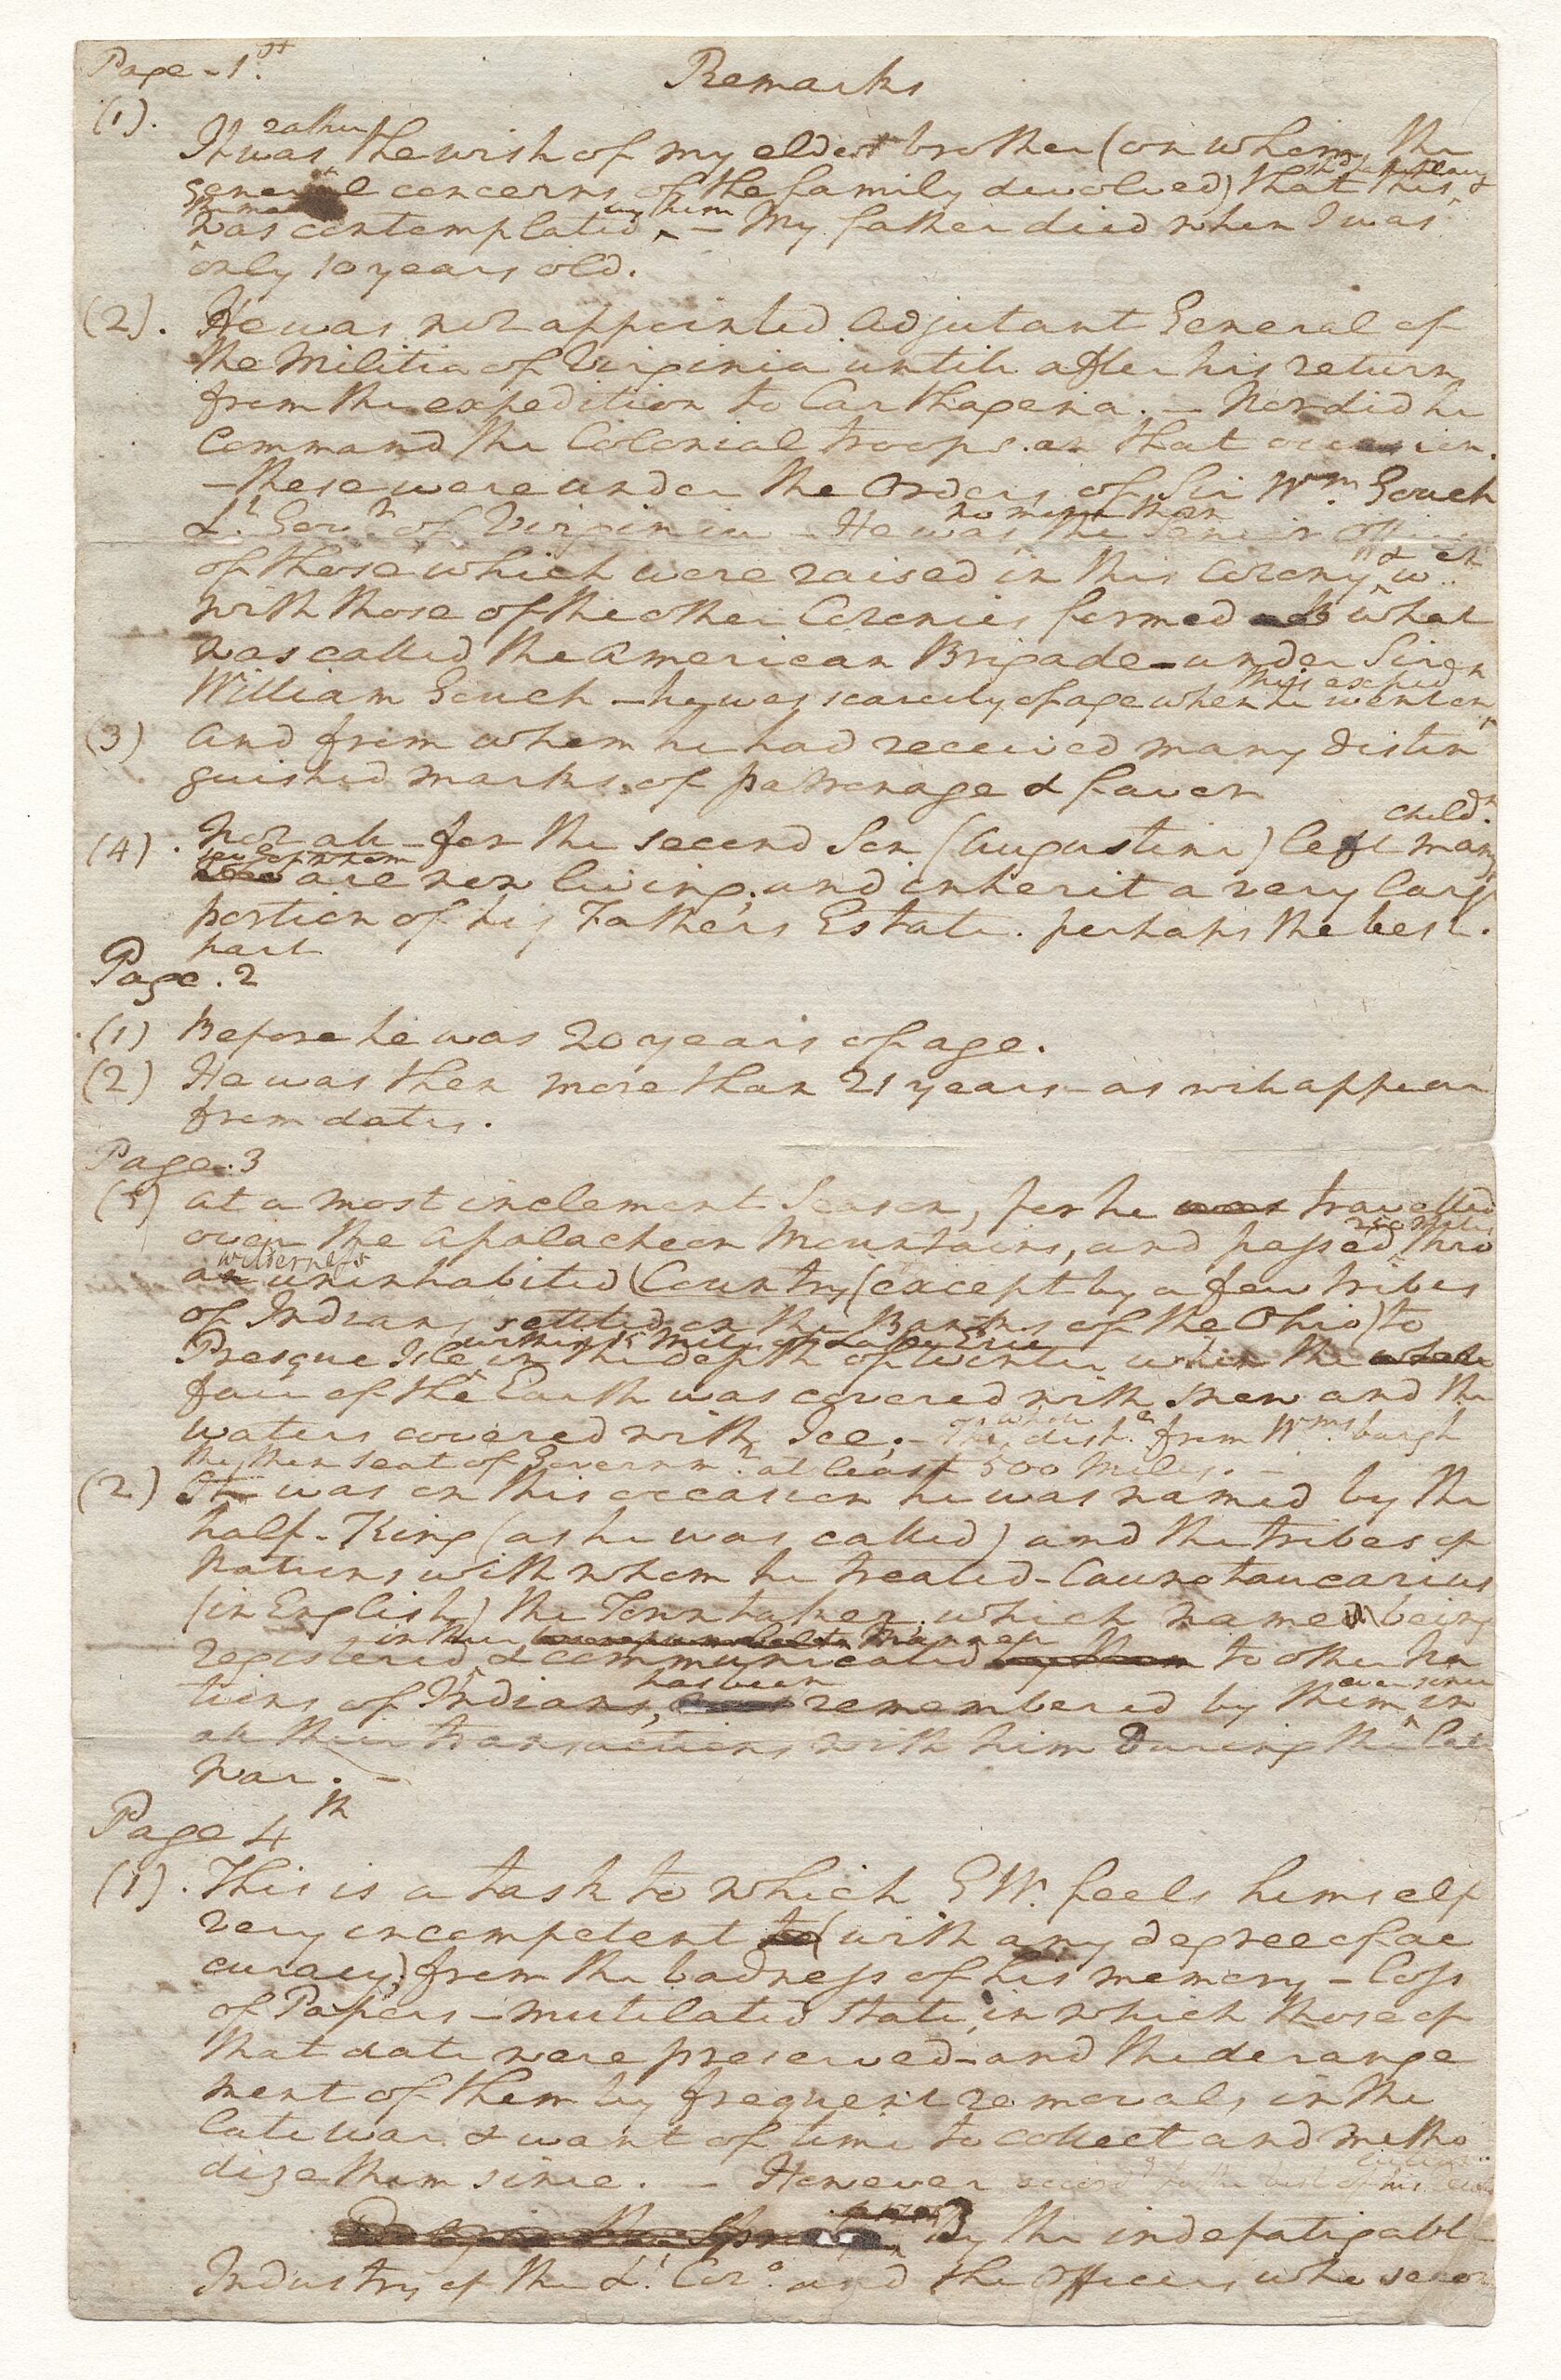 Page - 1st
Remarks
(1).
rather
It was the wish of my eldest brother (on whom the
general concerns of the family devolved) that this
by him
was contemplated - My father died when I was
only 10 years old.
(2). He was not appointed Adjutant General of
the Militia of Virginia untill after his return
from the expedition to Carthagena. - Nor did he
Command the Colonial troops on that occasion.
- these were under the Orders of Sir Wm. Gouch
no more than
Lt. Govr. of Virginia - He was the Senior Officer
& wch
of those which were raised in this Colony
with those of the other Colonies formed what
was called the American Brigade - under Sir
this esched.
William Gouch - he was scarcely of age when he went on
(3) And from whom he had received many distin
guished marks of patronage & favor
childn.
(4). Not all - for the second Son (Augustine) left many
several of whom
are now living; and inherit a very large
portion of his Fathers Estate. perhaps the best.
part
Page. 2
(1) Before he was 20 years of age.
(2) He was then more than 21 years - as will appear
from dates.
Page. 3
(1) at a most inclement Season, for he was travelled
250 miles
over the Apalacheon Mountains, and passed thro
wilderness
an uninhabited Country (except by a few tribes
of Indians settled on the Banks of the Ohio) to
within 15 Miles of Lake Erie
Presque Isle in the depth of Winter when the whole
face of the Earth was covered with snow and the
whole
waters covered with Ice; - The diste. from Wmsburgh
the then seat of Governmt. at least 500 miles. -
(2) It was on this occasion he was named by the
half-King (as he was called) and the tribes of
Nations with whom he treated - Caunotaucarius
(in English) the Town taker; which name being
in their manner
registered & communicated by them to other Na
has been
ever since
tions of Indians, was remembered by them in
all their transactions with him during the late
war. -
Page 4th
(1). This is a task to which GW. feels himself
very incompetent to (with any degree of ac
curacy) from the badness of his memory - loss
of Papers - mutilated state, in which those of
that date were preserved - and the derange
ment of them by frequent removals in the
late war & want of time to collect and metho
dize them since. - However accordg. to the best of his
By the indefatigable
Industry of the Lt. Colo. and the Officers who secon